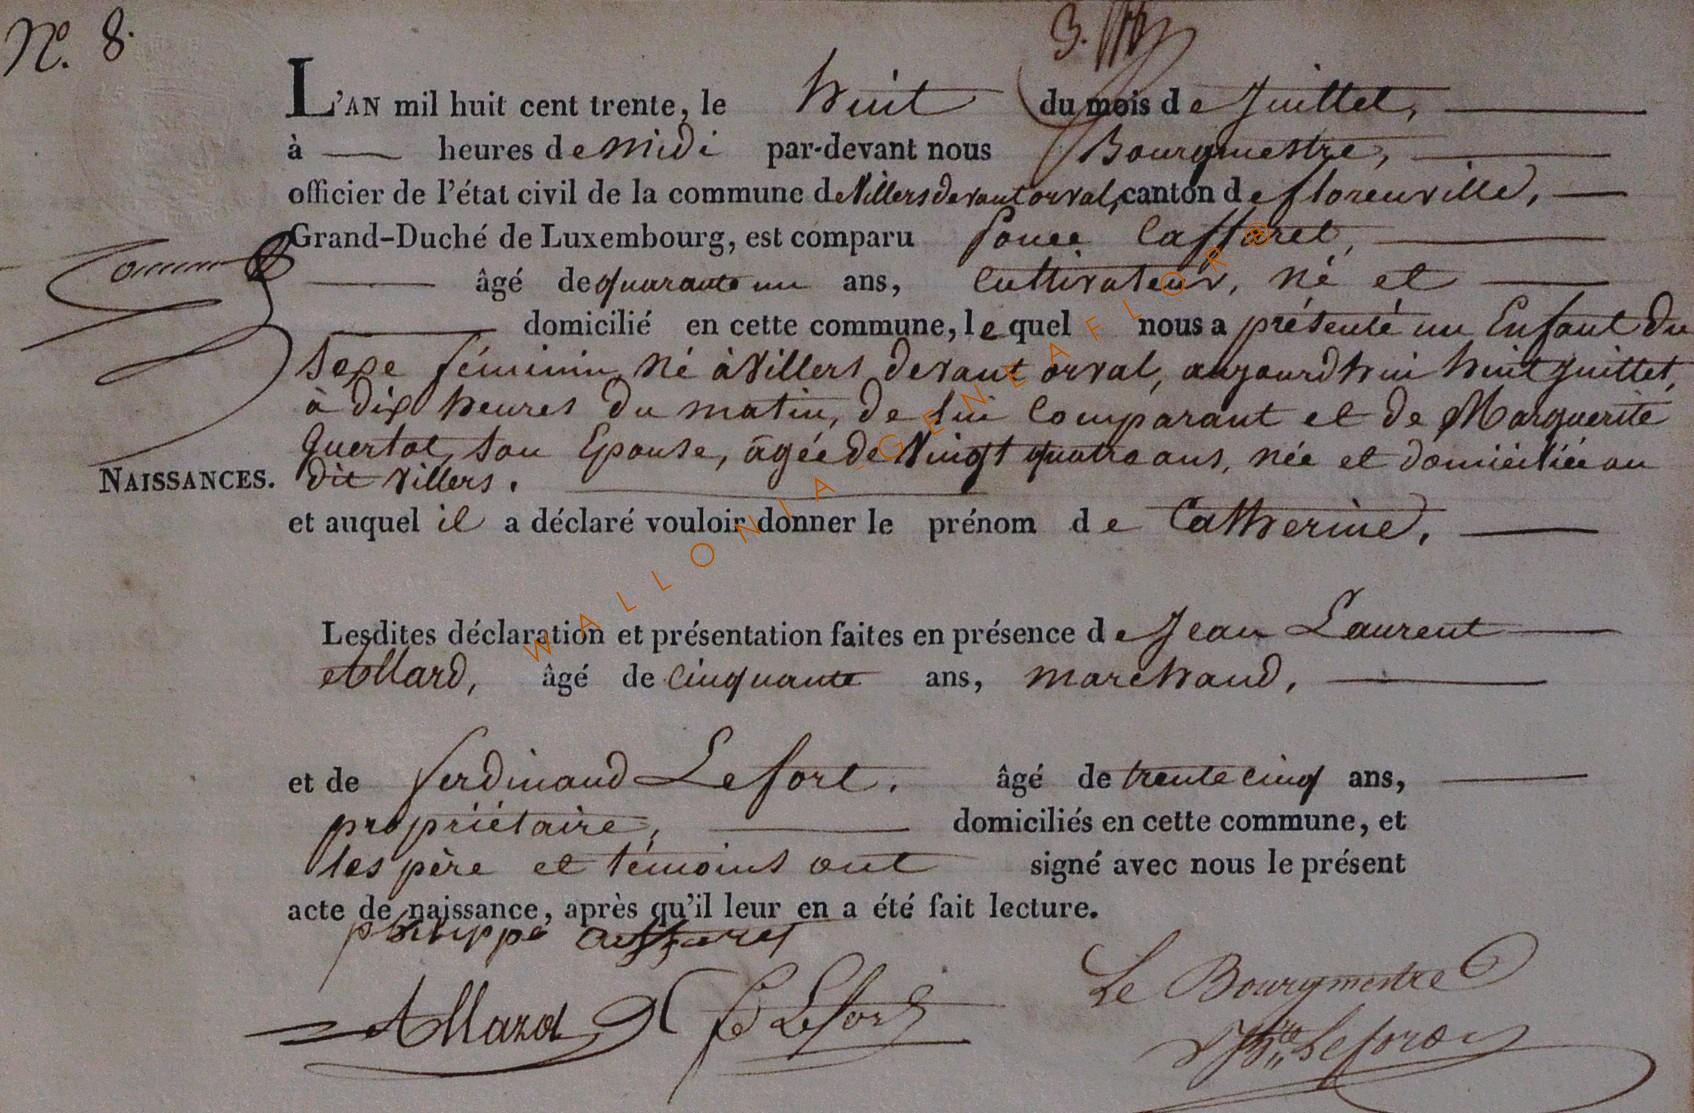 N.º 8.
L'AN mil huit cent trente, le huit du mois de Juillet,
à heures de midi par-devant nous Bourgmestre,
officier de l'état civil de la commune de Villers devant orval, canton de florenville,
Grand-Duché de Luxembourg, est comparu Caffaret,
âgé de quarante un ans, Cultivateur, né et
domicilié en cette commune, lequel nous a présenté un Enfant du
Sexe féminin, né à Villers devant orval, aujourd'hui huit juillet,
à dix heures du matin, de lui Comparant et de Marguerite
son Epouse, âgée de Vingt quatre ans, née et domiciliée au
NAISSANCES. dit Villers.
et auquel il a déclaré vouloir donner le prénom de Catherine,
Lesdites déclaration et présentation faites en présence de Jean Laurent
Allard, âgé de Cinquante ans, marchand,
et de ferdinand Lefort, âgé de trente cinq ans,
propriétaire, domiciliés en cette commune, et
les père et témoins ont signé avec nous le présent
acte de naissance, après qu'il leur en a été fait lecture.
philippe
Allard Lefort Le Bourgmestre
WALLONIA-GENEAFLOR®